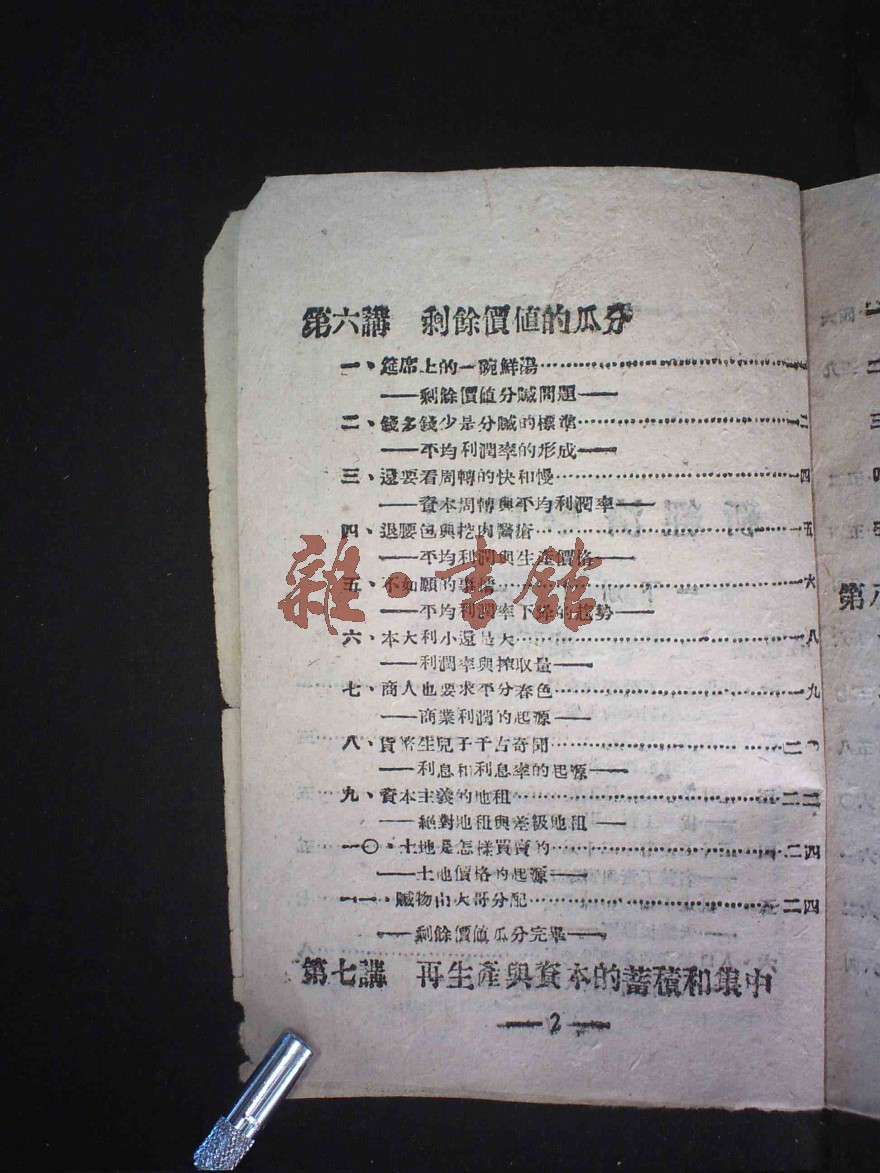 第六講　剩餘價値的瓜分
一、筵席上的一碗鮮湯
——剩餘價値分贓問題——
二、錢多錢少是分贓的標準…………一二
——平均利潤率的形成——
三、還要看周轉的快和慢…………一四
——資本周轉與平均利潤率——
四、退腰包與挖肉醫瘡…………一五
——平均利潤與生產價格——
五、不如願的事情…………一六
——平均利潤率下降的趨勢——
六、本大利小還是大…………一八
——利潤率與搾取量——
七、商人也要求平分春色…………一九
——商業利潤的起源——
八、貨幣生兒子千古奇聞…………二〇
——利息和利息率的起源——
九、資本主義的地租…………二二
——絕對地租與差級地租——
一〇、土地是怎樣買賣的…………二四
——土地價格的起源——
一一、贓物由大哥分配…………二四
——剩餘價値瓜分完畢——
第七講　再生產與資本的蓄積和集中
—2—
雜·書館
第八